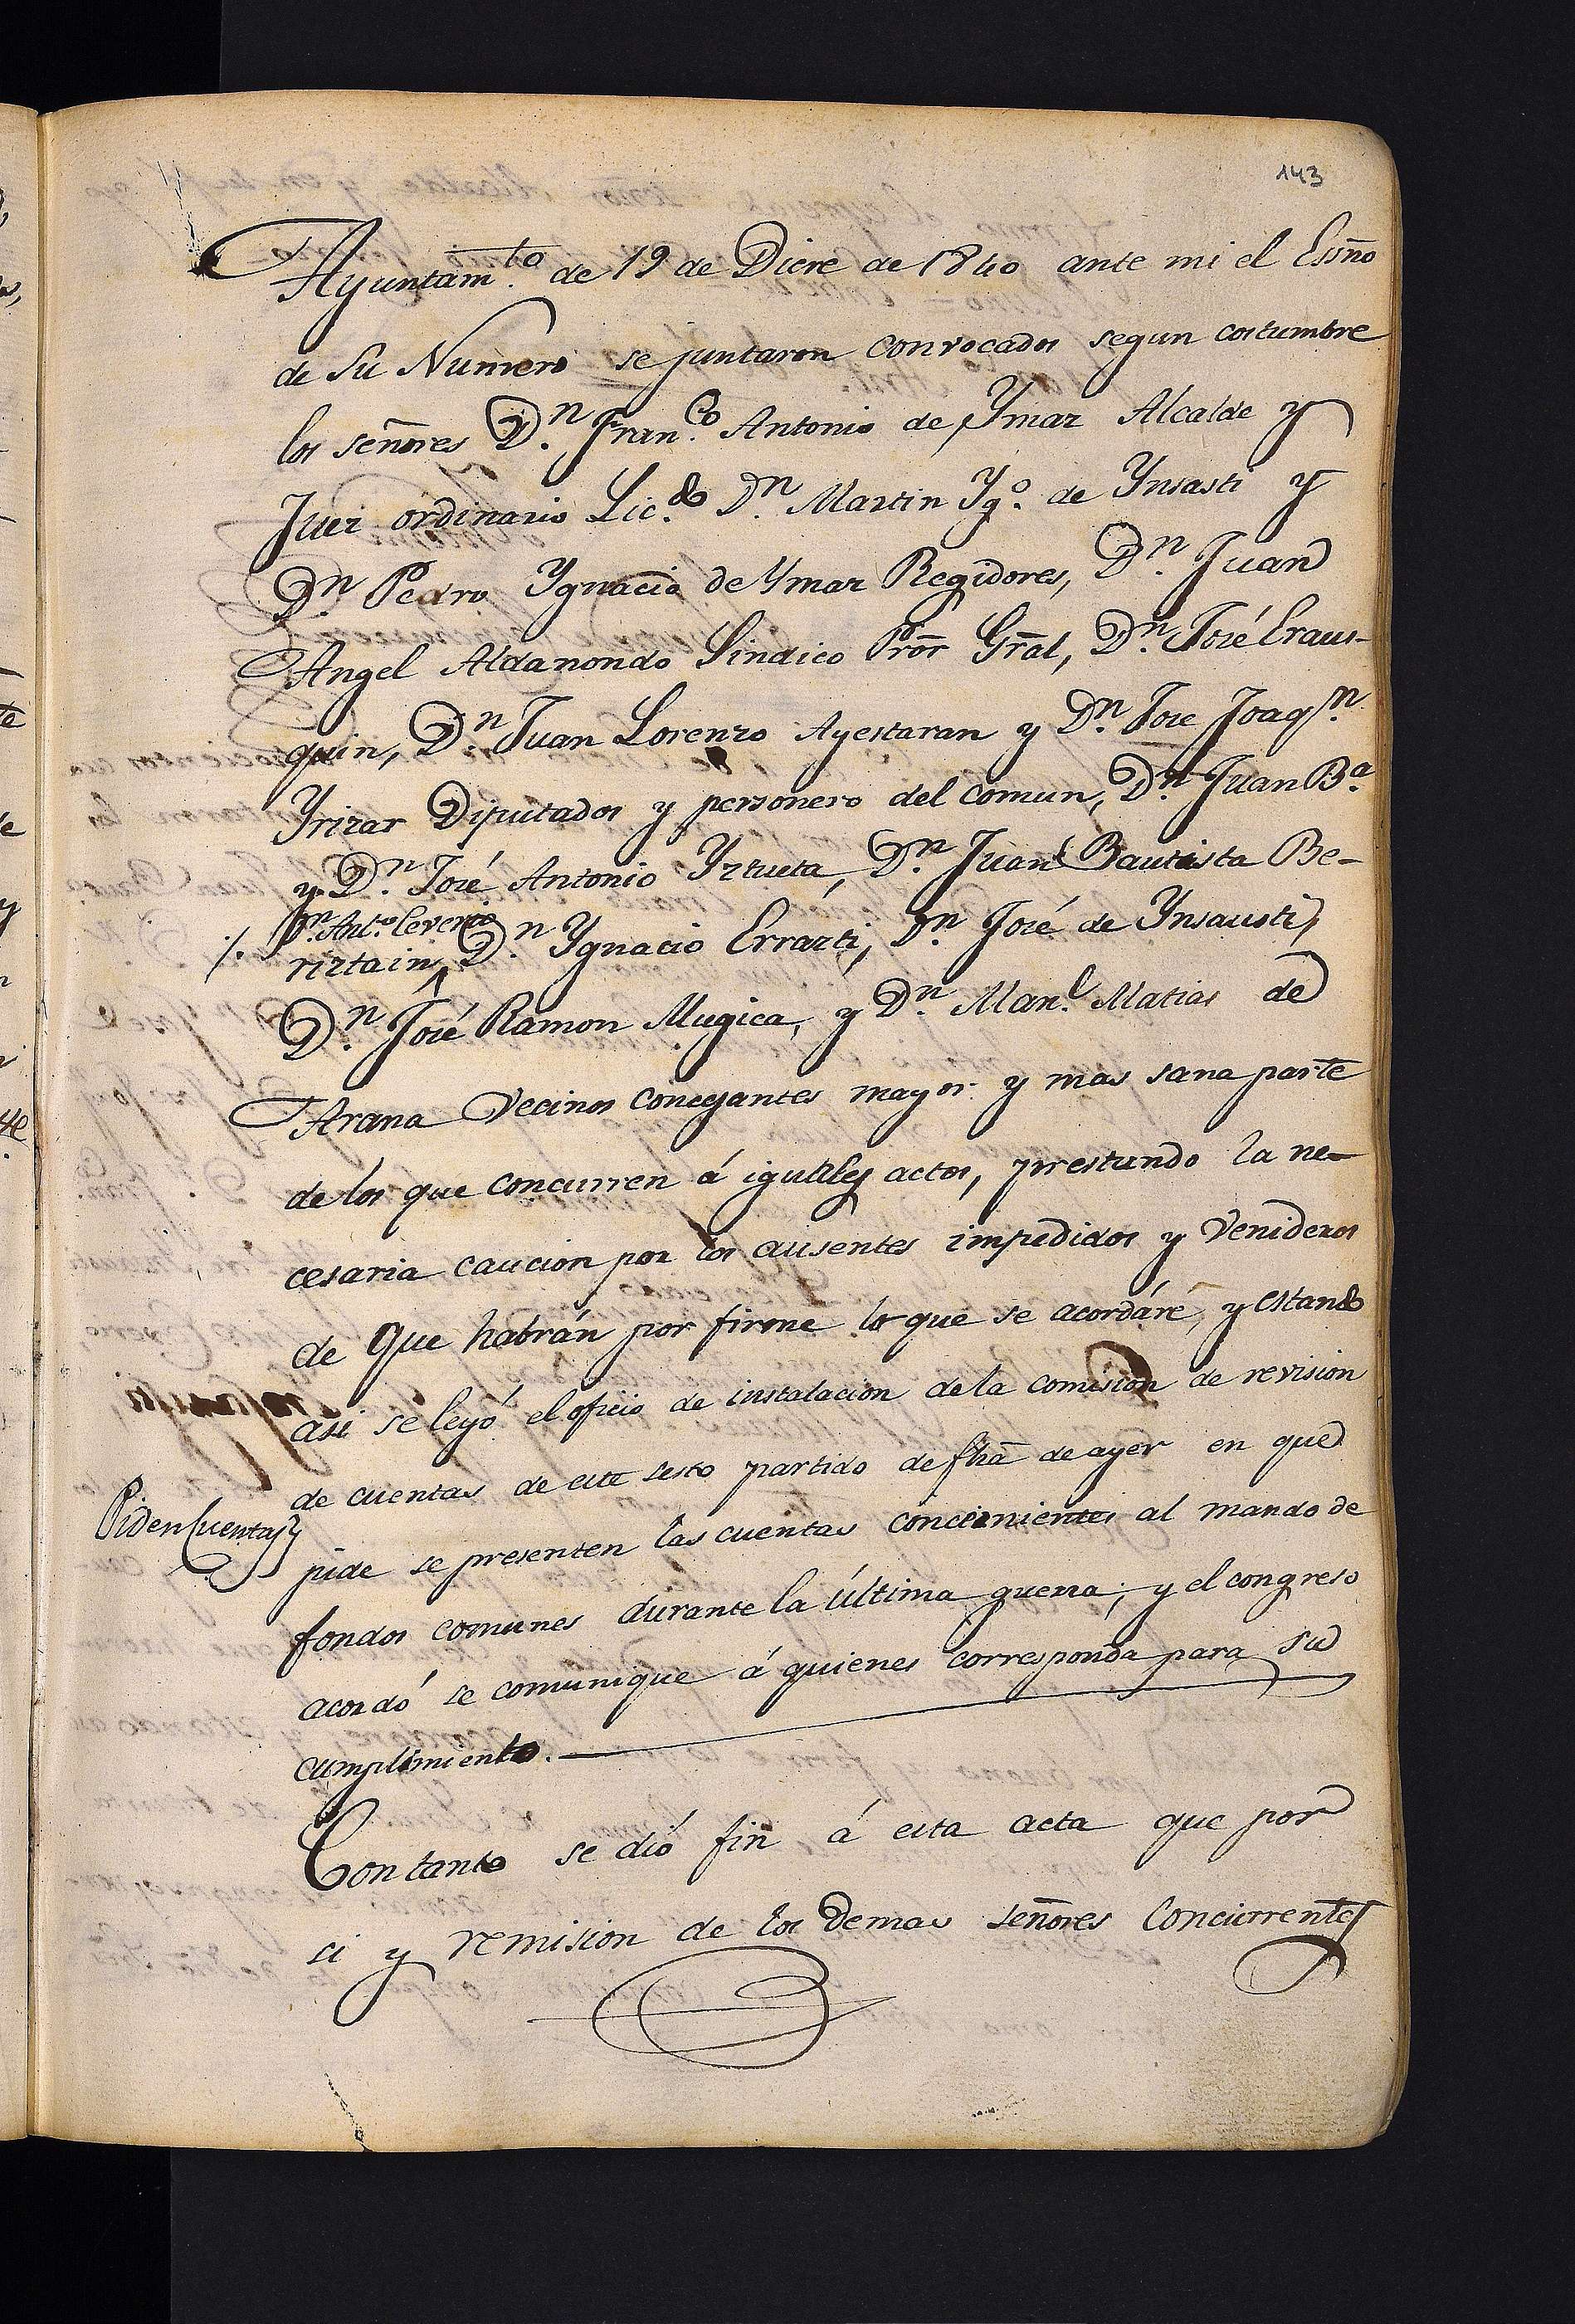 143
Ayuntam.to de 19 de Dicre de 1840 ante mi el Essño
de Su Numero se juntaron convocados segun costumbre
los señores D.n Fran.co Antonio de Ymaz Alcalde y
Juez ordinario Lic.do D.n Martin Yg.o de Ynsasti y
D.n Pedro Ygnacio de Ymaz Regidores, D.n Juan
Angel Aldanondo Sindico Pror Gral, D.n José Eraus-
quin, D.n Juan Lorenzo Ayestaran y D.n Jose Joaq.n
Yrizar Diputados y personero del comun, D.n Juan B.a
y D.n José Antonio Yztueta, D.n Juan Bautista Be-
D.n Ant.o Cererio
/. riztain, D.n Ygnacio Errazti, D.n José de Ynsausti,
D.n José Ramon Mugica, y D.n Man.l Matias de
Arana Vecinos concejantes mayor y mas sana parte
de los que concurren á iguales actos, prestando la ne-
cesaria caucion por los ausentes impedidos y Venideros
de que habrán por firme lo que se acordáre, y estando
asi se leyó el oficio de instalacion de la comision de revision
de cuentas de este sesto partido de fha de ayer en que
Piden Cuentas
pide se presenten las cuentas concernientes al mando de
fondos comunes durante la última guerra; y el congreso
acordó se comunique á quienes corresponda para su
cumplimiento.
Con tanto se dió fin á esta acta que por
si y remision de los Demas señores Concurrentes